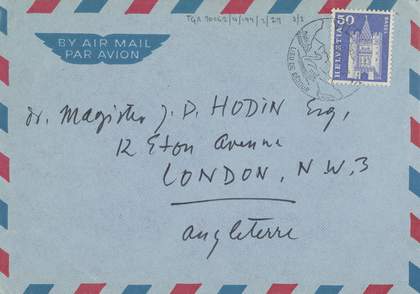 BY AIR MAIL
PAR AVION
50
HELVETIA
BASEL
Dr. Magister J. P. HODIN Esq,
12 Eton Avenue
LONDON, N.W.3
Angleterre